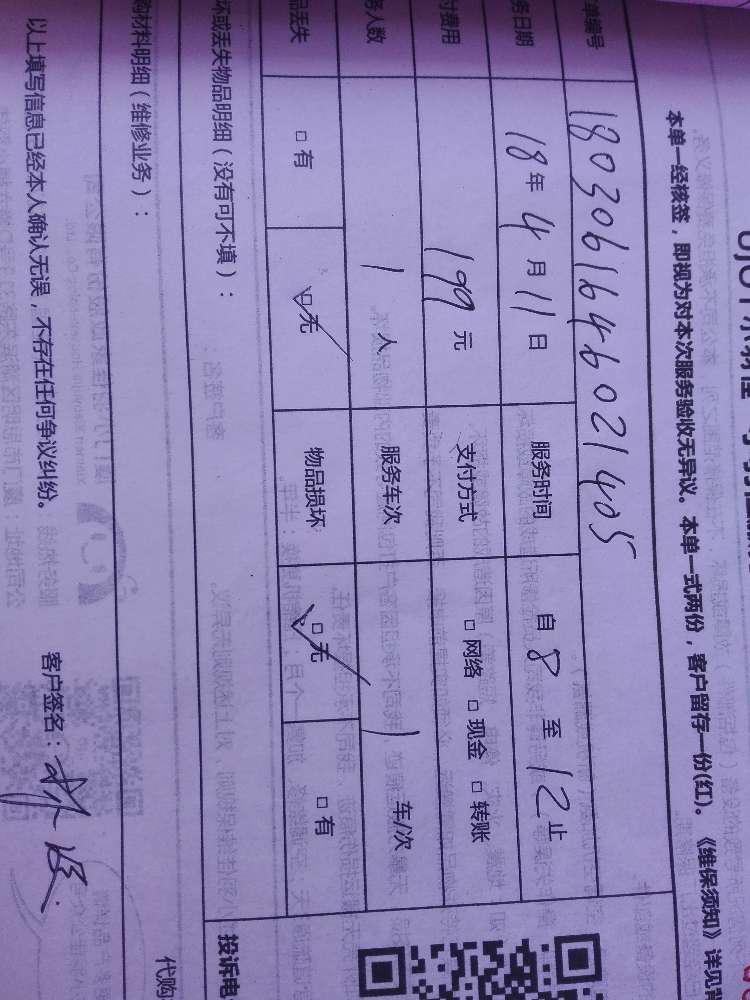 本单一经核签，即视为对本次服务验收无异议。本单一式两份，客户留存一份(红)。《维保须知》详见背
单编号 1803061646021405
务日期 18年4月11日 服务时间 自8至12止
付费用 199元 支付方式 □网络 □现金 □转账
务人数 1人 服务车次 1车/次
品丢失 □有 □无 物品损坏 □无 □有
坏或丢失物品明细（没有可不填）：
投诉电
购材料明细（维修业务）：
代购
以上填写信息已经本人确认无误，不存在任何争议纠纷。 客户签名：